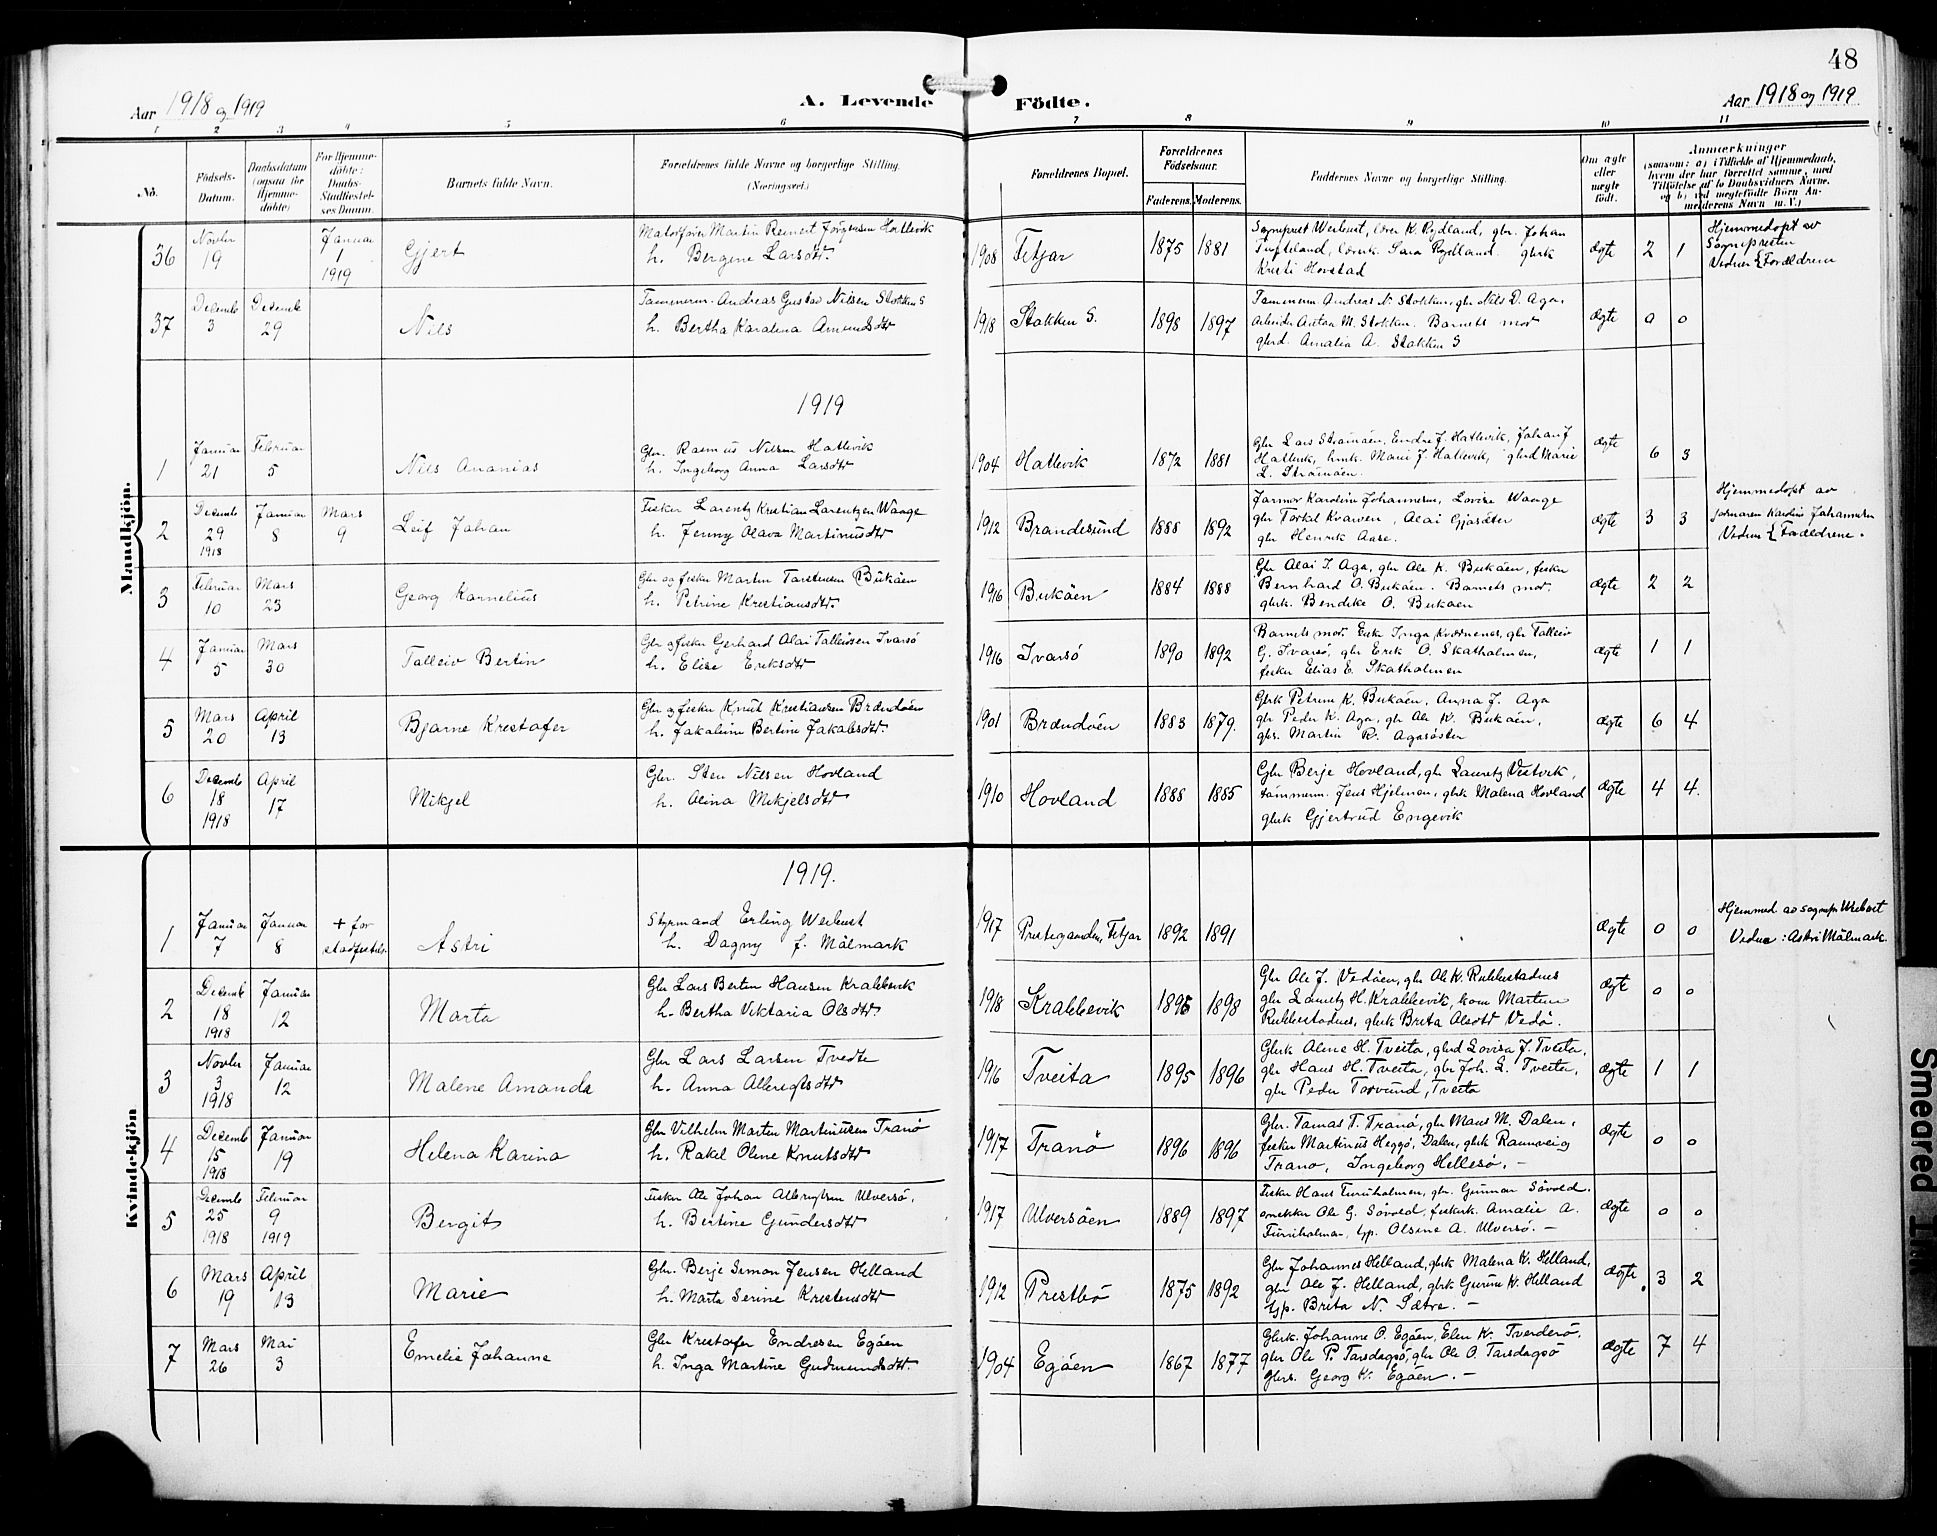 48
Aar 1918 og 1919
A. Levende
Födte.
Aar 1918 og 1919
1 2 3 4 5 6 7 8 9 10 11
No.
Födsels-Datum.
Daabsdatum (ogsaa for Hjemme-döbte)
For Hjemme-döbte: Daabs-Stadfæstel-ses Datum.
Barnets fulde Navn.
Forældrenes fulde Navne og borgerlige Stilling. (Næringsvei.)
Forældrenes Bopæl.
Forældrenes Födselsaar.
Faderens. Moderens.
Faddernes Navne og borgerlige Stilling.
Om ægte eller uægte födt.
Anmærkninger
(saasom: a) i Tilfælde af Hjemmedaab,
hvem der har forrettet samme, med
Tilföielse af to Daabsvidners Navne,
og b) ved uægtefödte Börn An-
melderens Navn m. V.)
Mandkjön.
36 Novbr 19 Januar 1 1919 Gjert
Martin Reinert Jörgensen Hatlevik
h. Bergine Larsdtr.
1908 Fitjar 1875 1881
Sogneprest Werlust, lærer K. Rydland, gbr. Johan
Tufteland, lærerk. Sara Rydland. gbrk
Kristi Hovstad
ægte 2 1
Hjemmedöpt av
Sognepresten
Vidner { Forældrene
37 Decemb 3 Decemb 29 Nils
Tömmerm. Andreas Gustav Nilsen Stokken S
h. Bertha Karolina Amundsdtr
1918 Stokken S. 1898 1897
Tömmerm Andreas N. Stokken, gbr Nils D. Aga,
arbeider Anton M. Stokken. Barnets mor
gbrd. Amalia A. Stokken S
ægte 0 0
1919
1 Januar 21 Februar 5 Nils Ananias
Gbr. Rasmus Nilsen Hatlevik
h. Ingeborg Anna Larsdtr
1904 Hatlevik 1872 1881
Gbr Lars Strömöen, Endre J. Hatlevik, Johan J
Hatlevik, hmk. Marie J. Hatlevik, gbrd Marie
L. Strömöen.
ægte 6 3
2 Decemb 29 1918 Januar 8 Mars 9 Leif Johan
Fisker Larentz Kristian Larentzen Waage
h. Jenny Olava Martinusdtr
1912 Brandesund 1888 1892
Jormor Karoline Johannesen, Lovise Waage
gbr Torkel Kvarven, Olai Gjösæter
gbr Henrik Aase.
ægte 3 3
Hjemmedöpt av
jormoren Karoline Johannesen
Vidner { Forældrene.
3 Februar 10 Mars 23 Georg Kornelius
Gbr og fisker Martin Torstensen Buköen
h. Petrine Kristiansdtr.
1916 Buköen 1884 1888
Gbr Olai I. Aga, gbr Ole K. Buköen, fisker
Bernhard O. Buköen. Barnets mor.
gbrk. Bendike O. Buköen
ægte 2 2
4 Januar 5 Mars 30 Talleiv Bertin
Gbr og fisker Gerhard Olai Talleivsen Ivarsö
h. Elise Eriksdtr
1916 Ivarsö 1890 1892
Barnets mor. Inga Kværnenes, gbr Talleiv
G. Ivarsö, gbr Erik O. Skatholmen,
fisker Elias E. Skatholmen
ægte 1 1
5 Mars 20 April 13 Bjarne Kristofer
Gbr og fisker Knut Kristiansen Brændöen
h. Jakobine Bertine Jakobsdtr.
1901 Brændöen 1883 1879.
Gbrk Petrine K. Buköen, Anna J. Aga
gbr Peder K. Aga, gbr Ole K. Buköen,
gbs. Martin K. Agasöster
ægte 6 4
6 Decemb 18 1918 April 17 Mikjel
Gbr. Sten Nilsen Hovland
h. Olina Mikjelsdtr
1910 Hovland 1888 1885
Gbr Berje Hovland, gbr Lauretz Vestvik,
tömmerm. Jens Hjelmen, gbrk Malena Hovland
gbrk Gjertrud Engevik
ægte 4 4.
Kvindekjön
1919.
1 Januar 7 Januar 8 + för stadfestels. Astri
Styrmand Erling Werlust
h. Dagny f. Målmark
1917 Prestegaarden, Fitjar 1892 1891
ægte 0 0
Hjemmed av sognepr. Werlust
Vidne: Astri Målmark.
2 Decemb 18 1918 Januar 12 Marta
Gbr Lars Bertin Hansen Krakkevik
h. Bertha Viktoria Olsdtr.
1918 Krakkevik 1895 1898
Gbr Ole J. Vedöen, gbr Ole K. Rukkestadnes
gbr Lauretz H. Krakkevik, kom Martine
Rukkestadnes, gbrk Brita Olsdtr Vedö.
ægte 0 0
3 Novbr 3 1918 Januar 12 Malene Amanda
Gbr Lars Larsen Tveita
h. Anna Albregtsdtr
1916 Tveita 1895 1896
Gbrk Aline H. Tveita, gbrd Lovisa J. Tveita,
gbr Hans H. Tveita, gbr Joh. L. Tveita,
gbr Peder Torvund, Tveita
ægte 1 1
4 Decemb 15 1918 Januar 19 Helena Karina
Gbr Vilhelm Martin Martinusen Tranö
h. Rakel Oline Knutsdtr
1917 Tranö 1896 1896
Gbr. Tomas T. Tranö, gbr Mons M. Dalen,
fisker Martinus Heggö, Dalen, gbrk Rannveig
Tranö, Ingeborg Hellesö. -
ægte 0 0
5 Decemb 25 1918 Februar 9 1919 Bergit
Fisker Ole Johan Albrigtsen Ulversö,
h. Bertine Gundersdtr
1917 Ulversöen 1889 1897
Fisker Hans Furuholmen, gbr. Gunnar Sövold.
snekker Ole G. Sövold, fiskerk. Amalie A.
Furuholmen, tjp. Olsine A. Ulversö. -
ægte 0 0
6 Mars 19 April 13 Marie
Gbr. Berje Simon Jensen Helland
h. Marta Serine Kristensdtr
1912 Prestbö 1875 1892
Gbr Johannes Helland, gbrk Malena K. Helland,
gbr Ole J. Helland, gbrk Gurine K. Helland
tjp. Brita N. Sætre. -
ægte 3 2
7 Mars 26 Mai 3 Emelie Johanne
Gbr Kristofer Endresen Egöen
h. Inga Martine Gudmundsdtr.
1904 Egöen 1867 1877
Gbrk. Johanne O. Egöen, Elen K. Tverderö.
gbr Ole P. Tarsdagsö, gbr Ole O. Tarsdagsö
gbrs. Georg K. Egöen. -
ægte 7 4
Smeared